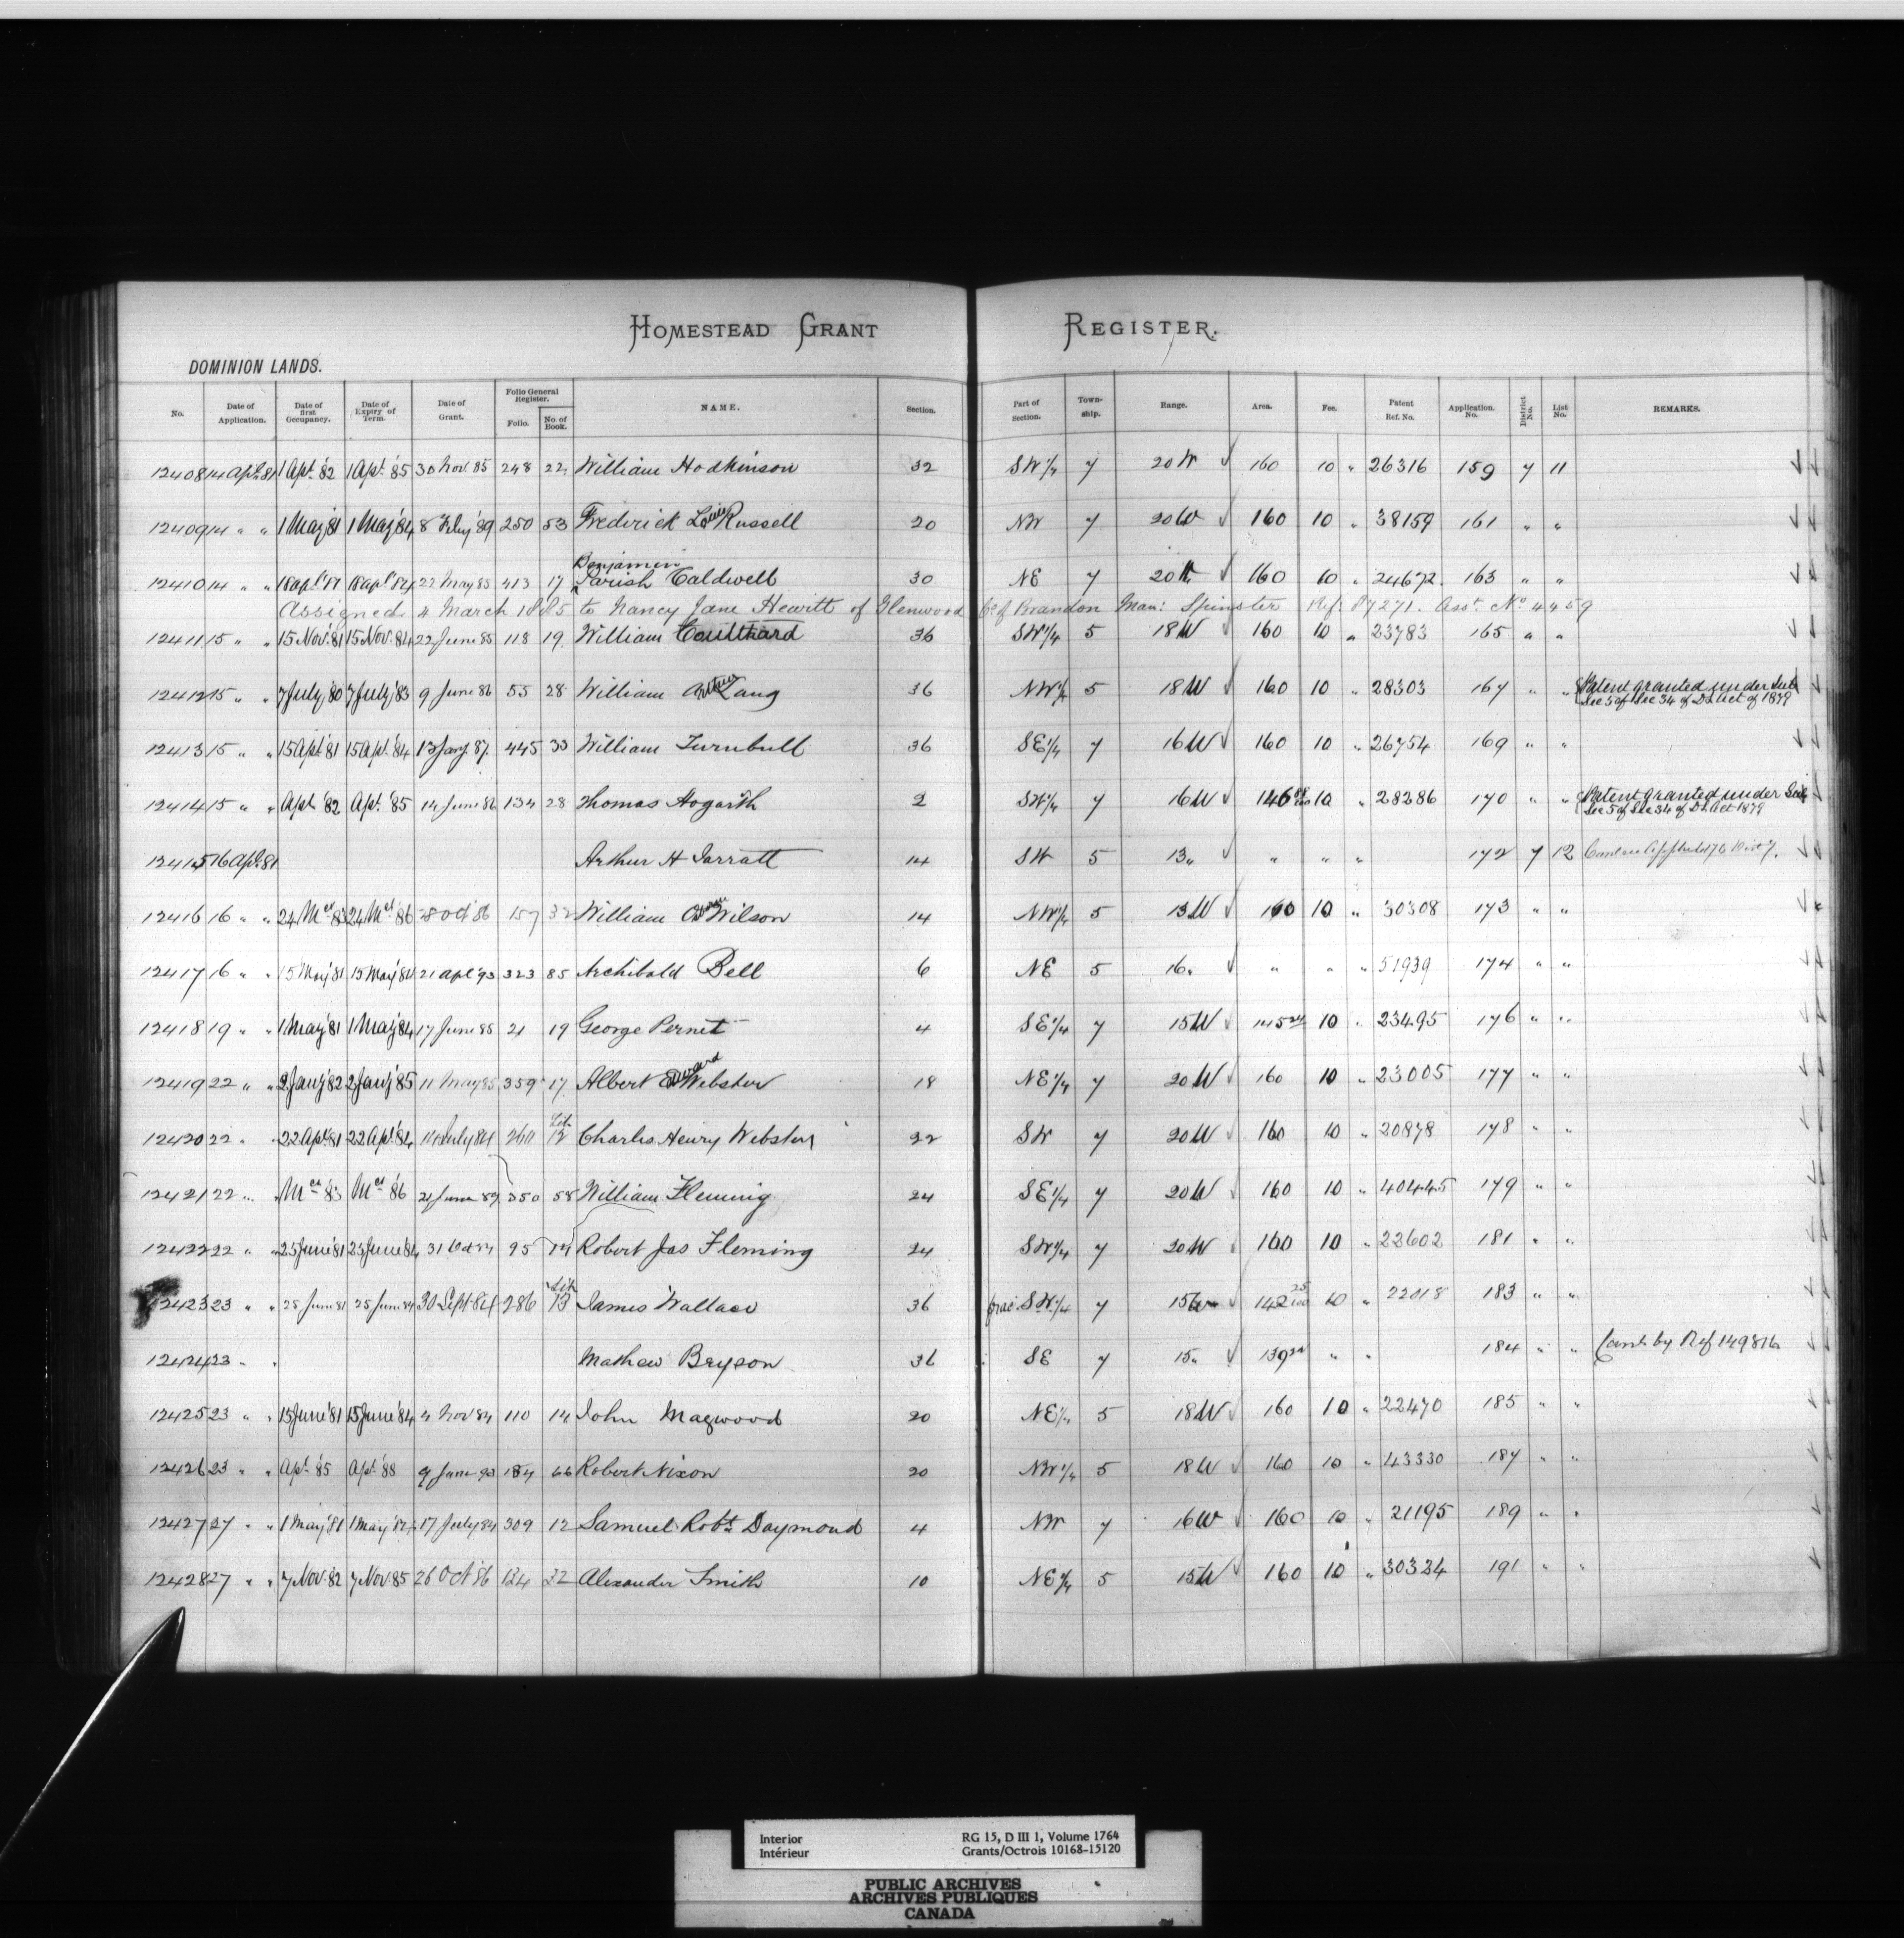 HOMESTEAD GRANT REGISTER.
DOMINION LANDS.
No. Date of Application. Date of first Occupancy. Date of Expiry of Term. Date of Grant. Folio General Register. Folio. No. of Book. NAME. Section. Part of Section. Township. Range. Area. Fee. Patent Ref. No. Application. No. District No. List No. REMARKS.
12408 14 Apl. 81 1 Apl. '82 1 Apl. '85 30 Nov. 85 248 22 William Hodkinson 32 SW 1/4 7 20 W 160 10 " 26316 159 7 11
12409 14 " " 1 May '81 1 May '84 8 Feby '89 250 53 Frederick Louis Russell 20 NW 7 20 W 160 10 " 38159 161 " "
Benjamin
12410 14 " " 18 apl '81 18 apl '84 22 May 85 413 17 Parish Caldwell 30 NE 7 20 W 160 10 " 24672 163 " "
Assigned 4 March 1885 to Nancy Jane Hewitt of Glenwood Co of Brandon Man: Spinster Ref: 87271. Asst. No 4459
12411 15 " " 15 Nov. '81 15 Nov. '84 22 June 85 118 19 William Coulthard 36 SW 1/4 5 18 W 160 10 " 23783 165 " "
12412 15 " " 7 July '80 7 July '83 9 June 86 55 28 William Arthur Lang 36 NW 1/4 5 18 W 160 10 " 28303 167 " " Patent granted under Sub
Sec 5 of Sec 34 of D L Act of 1879
12413 15 " " 15 Apl. '81 15 Apl. '84 13 Jany 87 445 33 William Turnbull 36 SE 1/4 7 16 W 160 10 " 26754 169 " "
12414 15 " " Apl. '82 Apl. '85 14 June 86 134 28 Thomas Hogarth 2 SW 1/4 7 16 W 146 10 " 28286 170 " " Patent granted under Sub
Sec 5 of Sec 34 of D L Act 1879
12415 16 Apl. 81 Arthur H Jarratt 14 SW 5 13 " " " " 172 7 12
12416 16 " " 24 Mch 83 24 Mch '86 28 Oct 86 157 32 William Wilson 14 NW 1/4 5 13 W 160 10 " 30308 173 " "
12417 16 " " 15 May '81 15 May '84 21 apl '93 323 85 Archibald Bell 6 NE 5 16 " " " " 51939 174 " "
12418 19 " " 1 May '81 1 May '84 17 June 85 21 19 George Pernet 4 SE 1/4 7 15 W 145 10 " 23495 176 " "
12419 22 " " 2 Jany '82 2 Jany '85 11 May 85 359 17 Albert Edward Webster 18 NE 1/4 7 20 W 160 10 " 23005 177 " "
12420 22 " 22 Apl '81 22 Apl '84 14 July 84 260 Lib. 12 Charles Henry Webster 22 SW 7 20 W 160 10 " 20878 178 " "
12421 22 " " Mch '83 Mch '86 21 June 89 350 58 William Fleming 24 SE 1/4 7 20 W 160 10 " 40445 179 " "
12422 22 " " 25 June '81 25 June '84 31 Oct 84 95 14 Robert Jas Fleming 24 SW 1/4 7 20 W 160 10 " 22602 181 " "
12423 23 " " 25 June 81 25 June 84 30 Sept 84 286 Lib 13 James Wallace 36 frac. S.W. 1/4 7 15 W 142 25/100 10 " 22018 183 " "
12424 23 " " Mathew Bryson 36 SE 7 15 " 139 " " 184 " " Canld by Ref 149816
12425 23 " " 15 June '81 15 June '84 4 Nov 84 110 14 John Magwood 20 NE 1/4 5 18 W 160 10 " 22470 185 " "
12426 23 " " Apl '85 Apl '88 9 June 90 184 66 Robert Nixon 20 NW 1/4 5 18 W 160 10 " 43330 187 " "
12427 27 " " 1 May '81 1 May '84 17 July 84 309 12 Samuel Robt. Daymond 4 NW 7 16 W 160 10 " 21195 189 " "
12428 27 " " 7 Nov. 82 7 Nov. 85 26 Oct 86 124 32 Alexander Smith 10 NE 1/4 5 15 W 160 10 " 30324 191 " "
Interior
Intérieur
RG 15, D III 1, Volume 1764
Grants/Octrois 10168-15120
PUBLIC ARCHIVES
ARCHIVES PUBLIQUES
CANADA